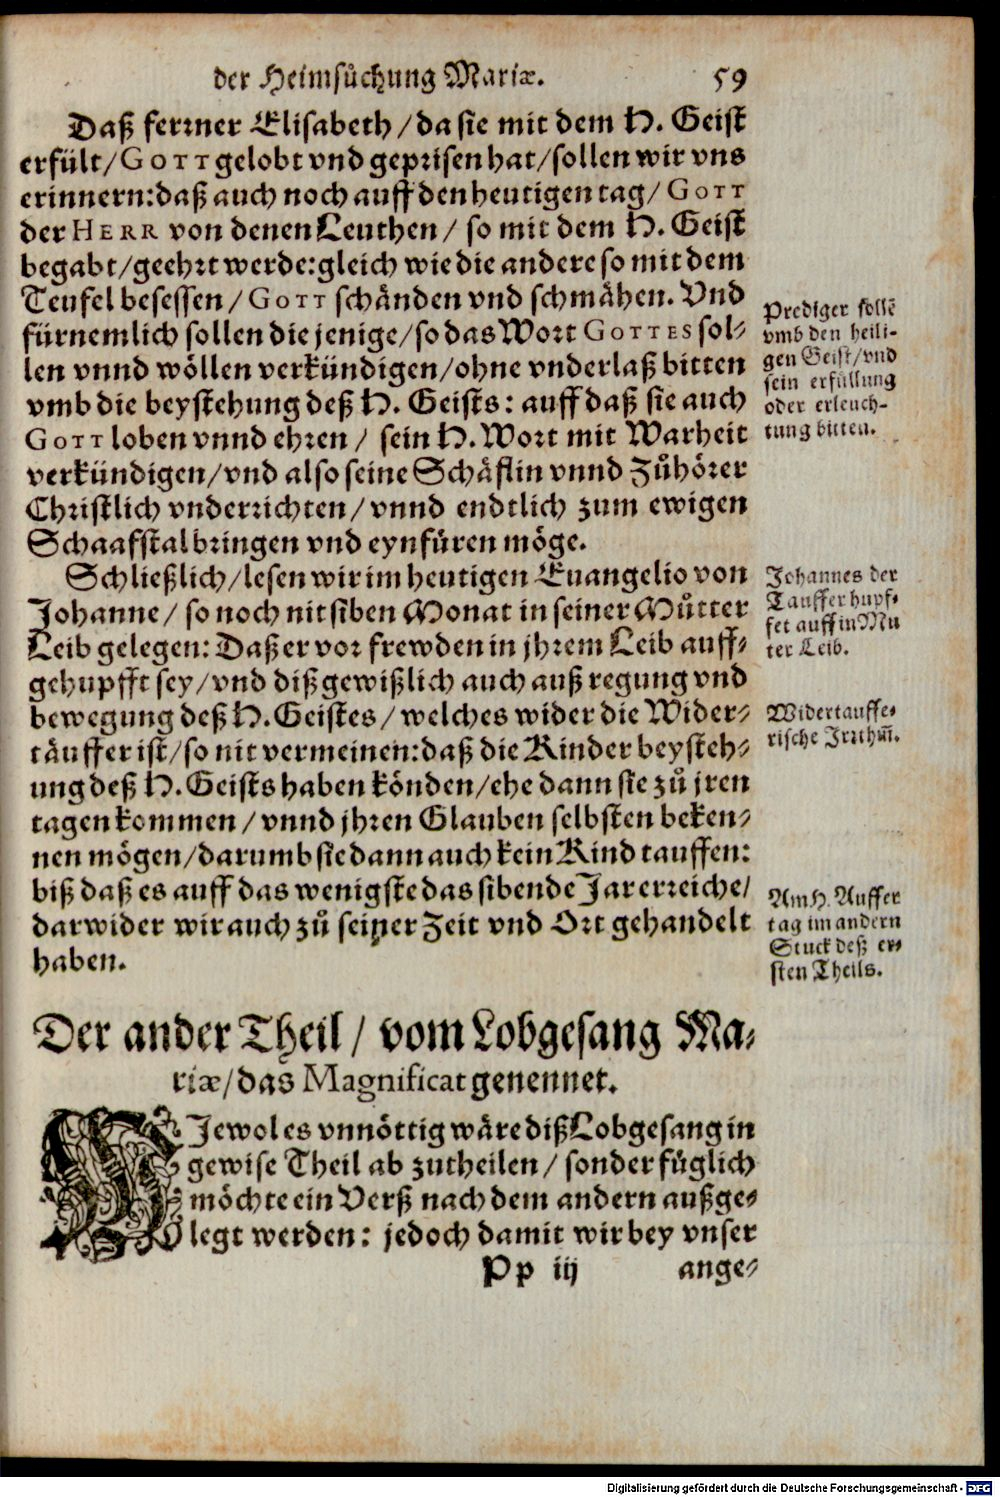 der Heimsůchung Mariæ. 59
Daß ferrner Elisabeth / da sie mit dem H. Geist
erfült / GOTT gelobt vnd geprisen hat / sollen wir vns
erinnern: daß auch noch auff den heutigen tag / GOTT
der HERR von denen Leuthen / so mit dem H. Geist
begabt / geehrt werde: gleich wie die andere so mit dem
Teufel besessen / GOTT schänden vnd schmähen. Vnd
fürnemlich sollen die jenige / so das Wort GOTTES sol-
len vnnd wöllen verkündigen / ohne vnderlaß bitten
vmb die beystehung deß H. Geists: auff daß sie auch
GOTT loben vnnd ehren / sein H. Wort mit Warheit
verkündigen / vnd also seine Schäflin vnnd Zůhörer
Christlich vnderrichten / vnnd endtlich zum ewigen
Schaafstal bringen vnd eynfüren möge.
Prediger sollē
vmb den heili-
gen Geist / vnd
sein erfüllung
oder erleuch-
tung bitten.
Schließlich / lesen wir im heutigen Euangelio von
Johanne / so noch nit siben Monat in seiner Můtter
Leib gelegen: Daß er vor frewden in jhrem Leib auff-
gehupfft sey / vnd diß gewißlich auch auß regung vnd
bewegung deß H. Geistes / welches wider die Wider-
täuffer ist / so nit vermeinen: daß die Kinder beysteh-
ung deß H. Geists haben könden / ehe dann sie zů jren
tagen kommen / vnnd jhren Glauben selbsten beken-
nen mögen / darumb sie dann auch kein Kind tauffen:
biß daß es auff das wenigste das sibende Jar erreiche /
darwider wir auch zů seiner Zeit vnd Ort gehandelt
haben.
Johannes der
Tauffer hupf-
fet auff in Mu
ter Leib.
Widertauffe-
rische Irrthum̄.
Am H. Auffer
tag im andern
Stuck deß er-
sten Theils.
Der ander Theil / vom Lobgesang Ma-
riæ / das Magnificat genennet.
WJewol es vnnöttig wäre diß Lobgesang in
gewise Theil ab zutheilen / sonder füglich
möchte ein Verß nach dem andern außge-
legt werden: jedoch damit wir bey vnser
Pp iij ange-
Digitalisierung gefördert durch die Deutsche Forschungsgemeinschaft - DFG